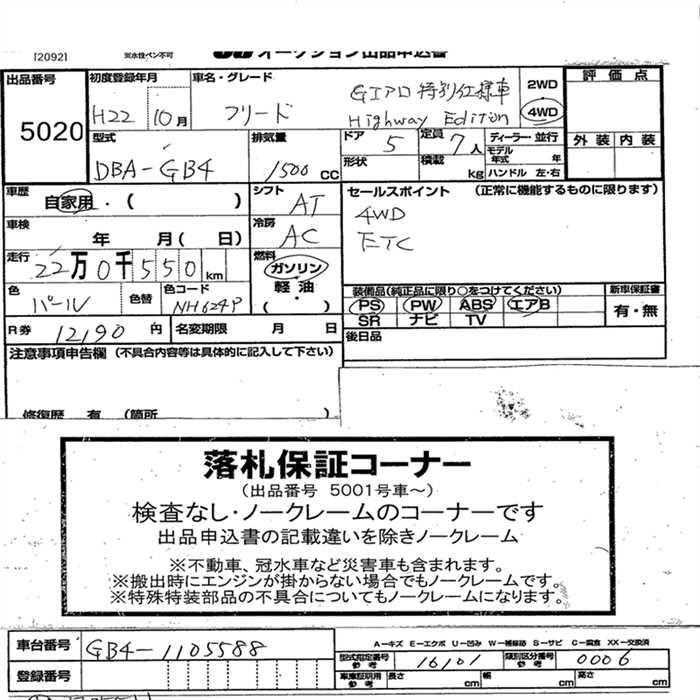 [2092]
蛍水性ペン不可
オークション出品申込書
出品番号
5020
初度登録年月
H22 10月
車名・グレード
フリード
Gエアロ 特別仕様車
Highway Edition
2WD
4WD
評価点
外装 内装
型式
DBA-GB4
排気量
1500 CC
ドア 5
形状
定員 7人
積載 kg
ディーラー・並行
モデル年式 年
ハンドル 左・右
車歴
自家用・( )
シフト
AT
セールスポイント (正常に機能するものに限ります)
4WD
ETC
車検
年 月( 日)
冷房
AC
走行
22万0千550km
燃料
ガソリン
軽油・
( )
色
パール
色替
色コード
NH624P
装備品(純正品に限り○をつけてください)
PS PW ABS エアB
SR ナビ TV
新車保証書
有・無
R券 12190 円
名変期限 月 日
後日品
注意事項申告欄 (不具合内容等は具体的に記入して下さい)
修復歴 有 (箇所 )
落札保証コーナー
(出品番号 5001号車~)
検査なし・ノークレームのコーナーです
出品申込書の記載違いを除きノークレーム
※不動車、冠水車など災害車も含まれます。
※搬出時にエンジンが掛からない場合でもノークレームです。
※特殊特装部品の不具合についてもノークレームになります。
車台番号 GB4-1105588
登録番号
A-キズ E-エクボ U-凹み W-補修跡 S-サビ C-腐食 XX-交換済
型式指定番号 参考 16101
類別区分番号 参考 0006
車庫証明用 参考 長さ cm 幅 cm 高さ cm